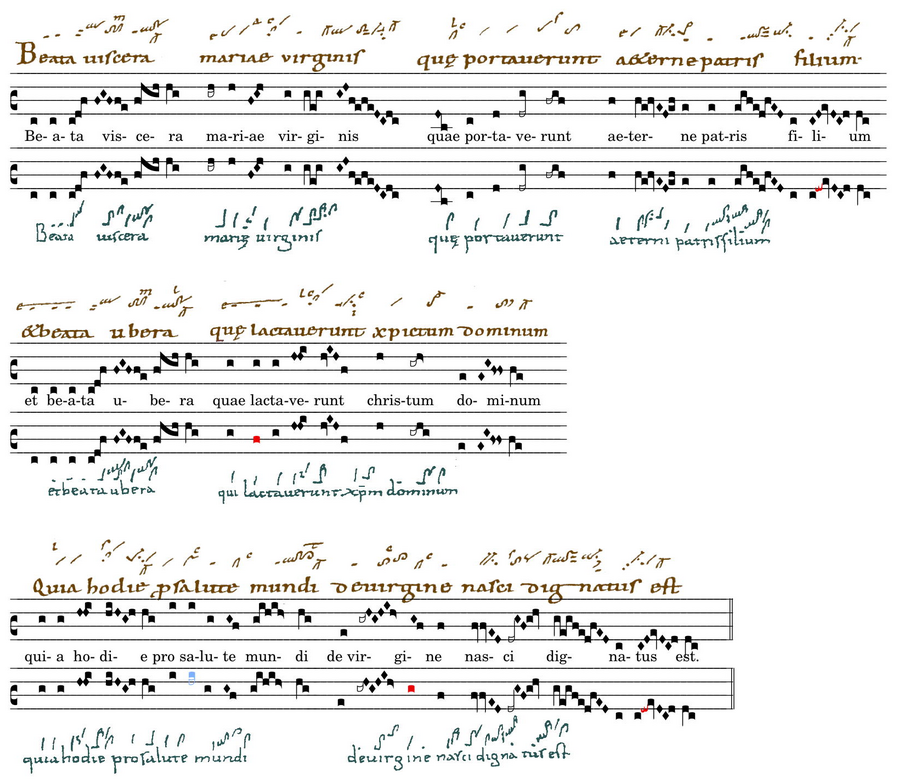 Beata uiscera mariae virginis quę portauerunt aeterne patris filium
Be- a- ta vis- ce- ra ma-ri-ae vir- gi- nis quae por-ta- ve- runt ae-ter- ne pat-ris fi- li- um
Beata uiscera marię uirginis quę portauerunt aeterni patris filium
&beata ubera quę lactauerunt xpictum dominum
et be-a-ta u- be- ra quae lacta-ve- runt chris-tum do- mi-num
et beata ubera qui lactauerunt xpm dominum
Quia hodie p salute mundi deuirgine nasci dignatus est
qui- a ho- di- e pro sa-lu- te mun- di de vir- gi- ne nas- ci dig- na- tus est.
quia hodie pro salute mundi deuirgine nasci dignatus est